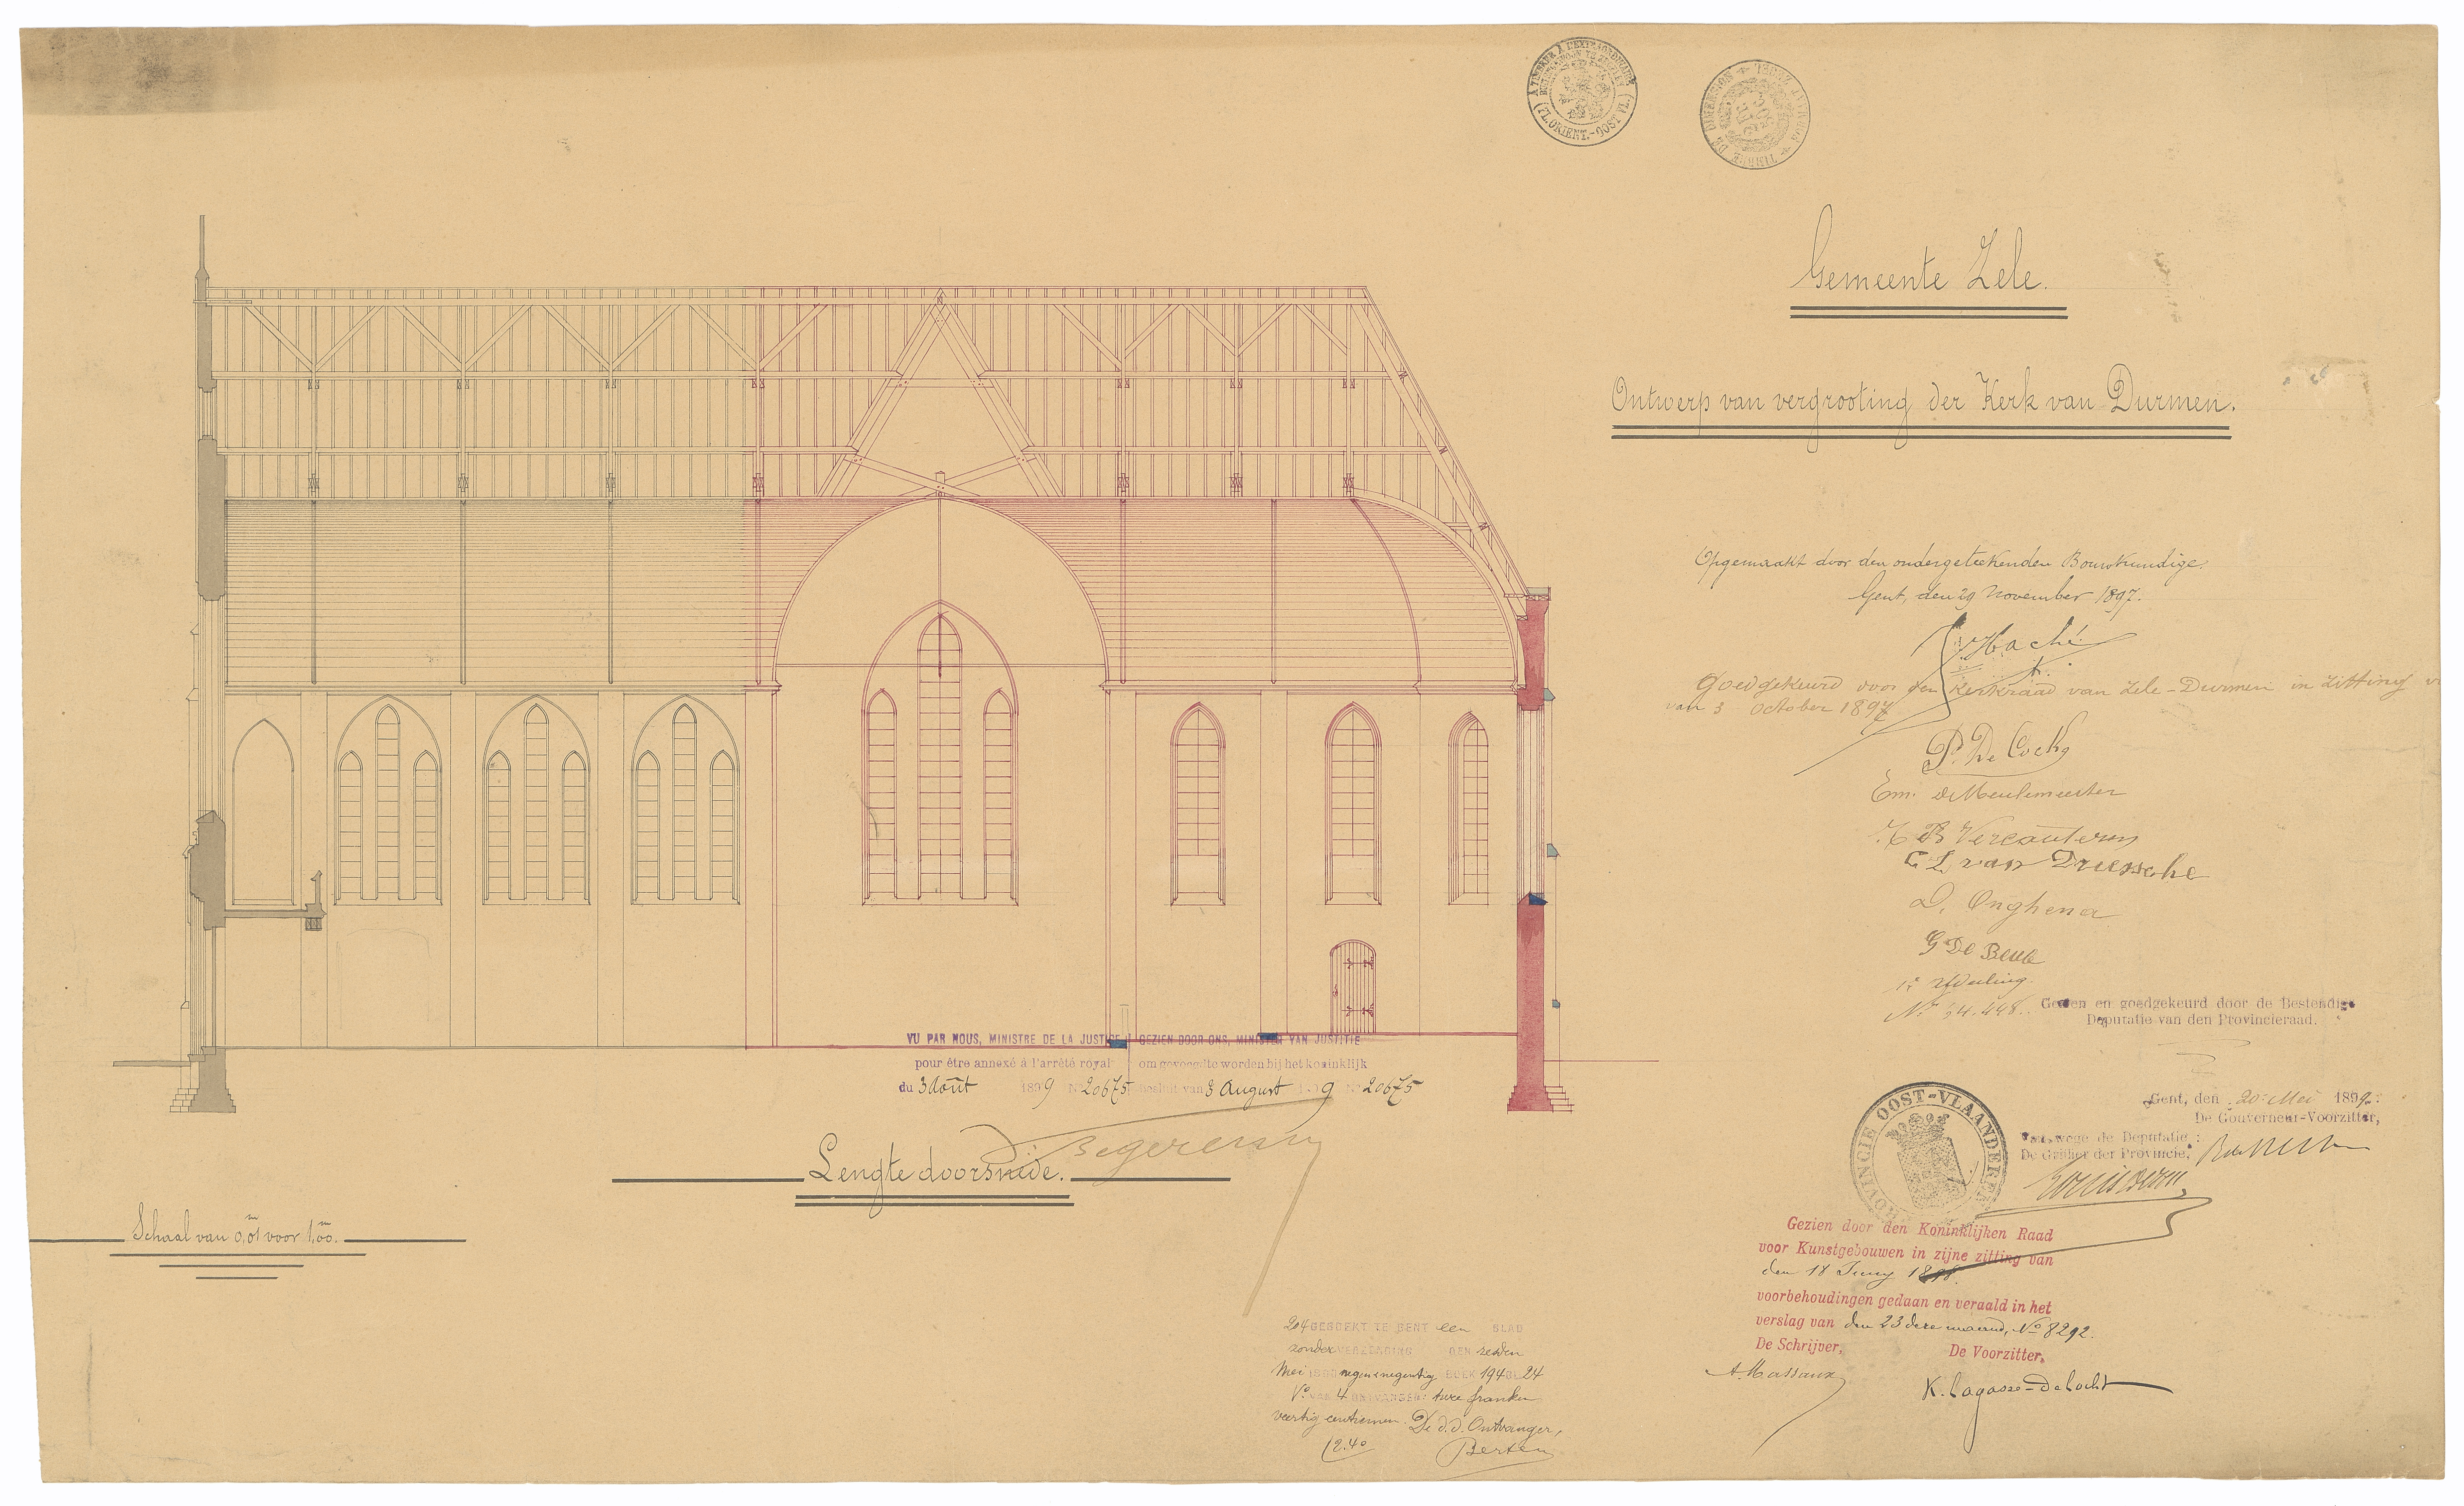 A TIMBRER À L'EXTRAORDINAIRE
(FL. ORIENT.-OOST VL.)
TIMBRE DE DIMENSION
Gemeente Zele.
Ontwerp van vergrooting der Kerk van Durmen.
Opgemaakt door den ondergeteekenden Bouwkundige.
Gent, den 29 November 1897.
Haché
Goedgekeurd door den kerkraad van Zele-Durmen in zitting
van 3 October 1897
P. De Cock
Em. de Meulemeester
Vercauteren
van Driessche
D. Onghena
G De Beule
1e afdeeling
No 34.448.
Gezien en goedgekeurd door de Bestendige
Deputatie van den Provincieraad.
Gent, den 20 Mei 1899.
De Gouverneur-Voorzitter,
Van wege de Deputatie:
De Griffier der Provincie,
PROVINCIE OOST-VLAANDEREN
Gezien door den Koninklijken Raad
voor Kunstgebouwen in zijne zitting van
den 18 Juny 1898
voorbehoudingen gedaan en veraald in het
verslag van den 23 dezer maand, No 8292.
De Schrijver, De Voorzitter,
A. Massaux K. Lagasse-Delocht
VU PAR NOUS, MINISTRE DE LA JUSTICE GEZIEN DOOR ONS, MINISTER VAN JUSTITIE
pour être annexé à l'arrêté royal om gevoegd te worden bij het koninklijk
du 3 Août 1899 No 20675 besluit van 3 August 1899 No 20675
Begerem
Lengte doorsnede.
Schaal van 0,01m voor 1,00m.
204 GEBOEKT TE GENT een BLAD
zonder VERZENDING DEN zesden
Mei negenennegentig BOEK 194 BL 24
Vo VAK 4 ONTVANGEN: twee franken
veertig centiemen. De d.d. Ontvanger,
(2.40 Berten